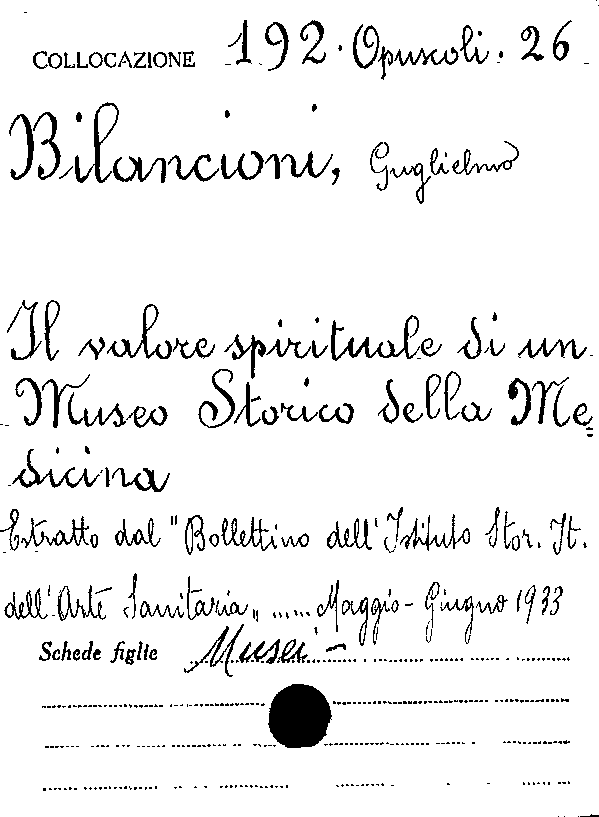 COLLOCAZIONE 192. Opuscoli. 26
Bilancioni, Guglielmo
Il valore spirituale di un
Museo Storico della Me=
dicina
Estratto dal "Bollettino dell'Istituto Stor. It.
dell'Arte Sanitaria„ ...... Maggio - Giugno 1933
Schede figlie Musei -